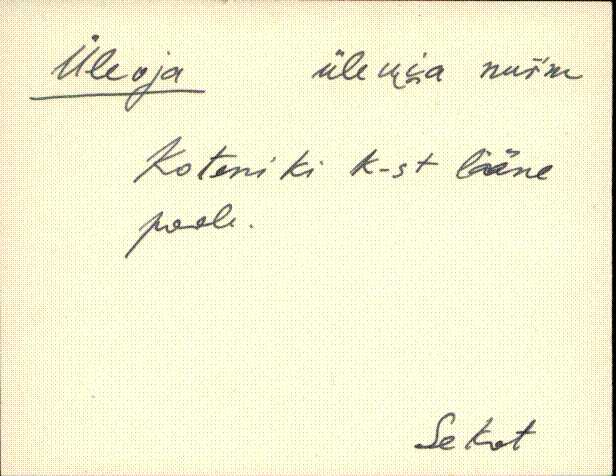 Üleoja üleuja nurm
Koteniki k-st lääne
poole.
Sekot